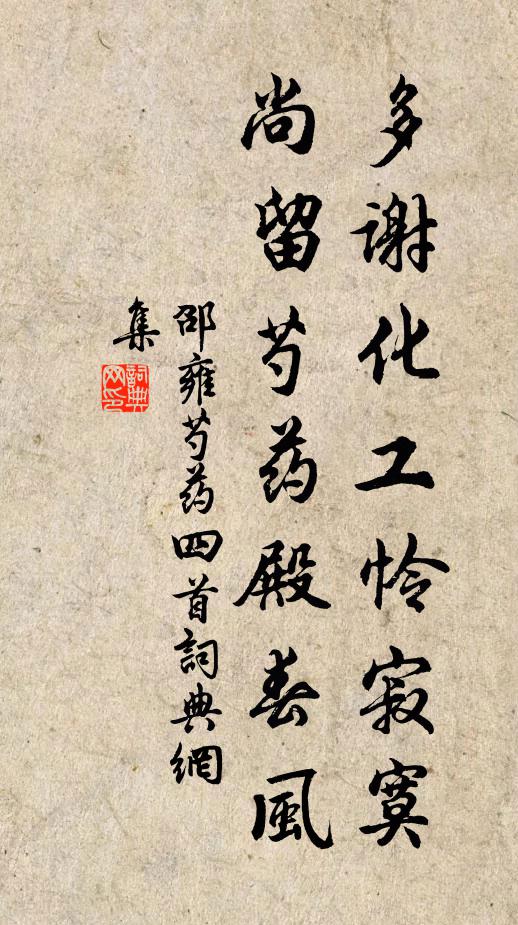 多谢化工怜寂寞
尚留芍药殿春風
邵雍芍药四首詞典網
集
詞典
网印